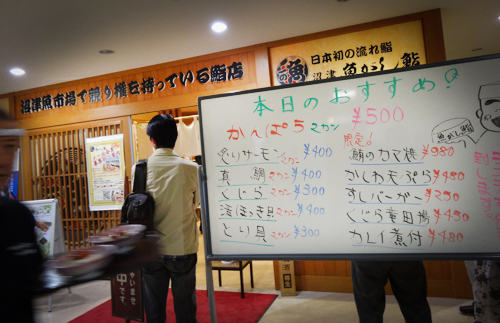 沼津魚市場で競り権を持っている鮨店
日本初の流れ鮨
沼津 魚がし鮨
本日のおすすめ!
¥500
かんぱち 2カン
炙りサーモン 2カン ¥400
真鯛 2カン ¥400
くじら 2カン ¥300
活ほっき貝 2カン ¥400
とり貝 2カン ¥300
限定!
鯛のカマ焼 ¥980
かしわ天ぷら ¥480
すしバーガー ¥250
くじら竜田揚 ¥450
カレイ煮付 ¥480
魚がし鮨
中です。